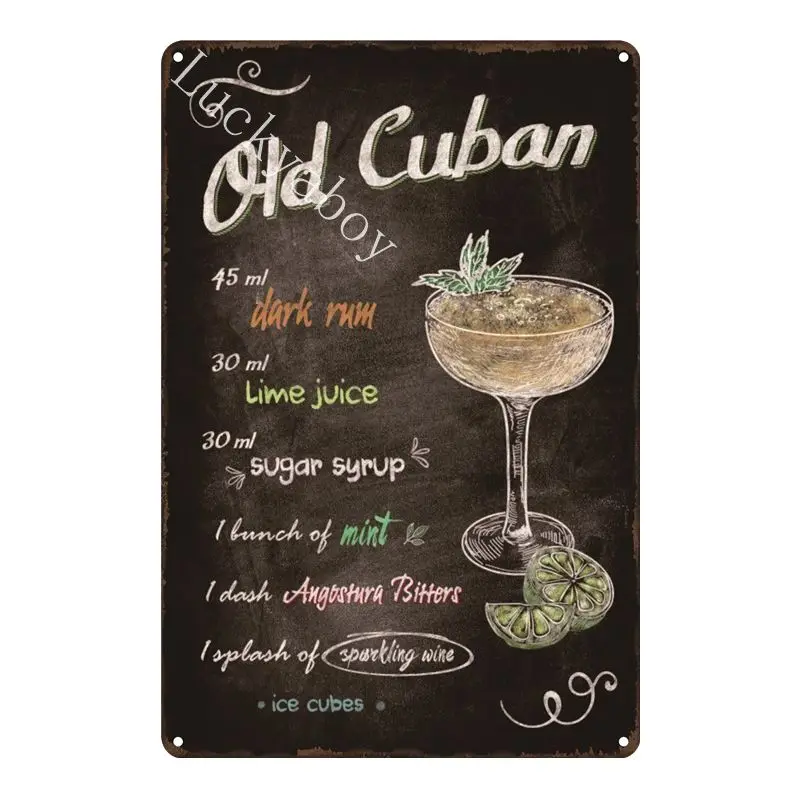 Luckyaboy
Old Cuban
45 ml
dark rum
30 ml
Lime juice
30 ml
sugar syrup
1 bunch of mint
1 dash Angostura Bitters
1 splash of sparkling wine
• ice cubes •